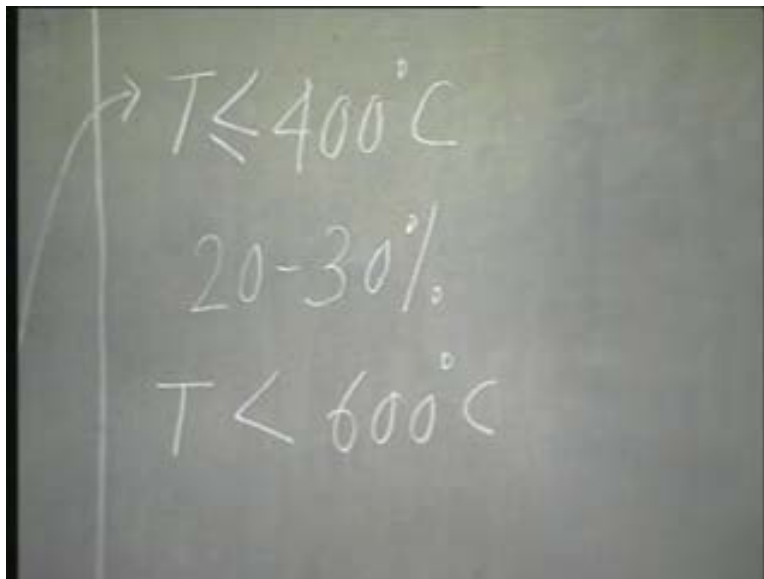 T ≤ 400°C
20-30%
T < 600°C